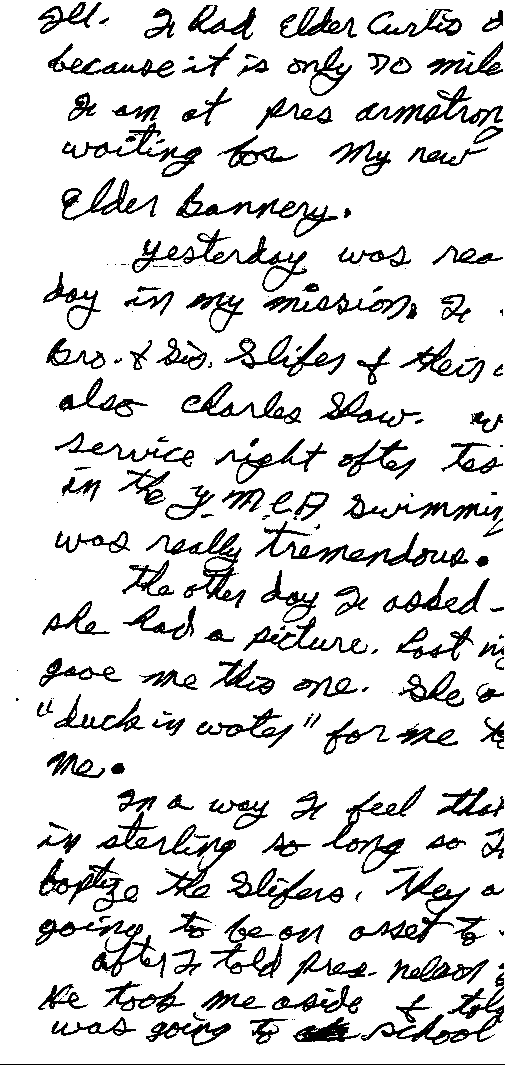 Ill. I had Elder Curtis
because it is only 70 mile
I am at Pres Armstron
waiting for My new
Elder Bannery.
Yesterday was rea
day in my mission. I
Bro. & Sis. Slifer & their
also Charles Shaw. w
service right after Tes
in the Y.M.C.A Swimmin
was really tremendous.
The other day I asked
she had a picture. Last ni
gave me this one. She a
"duck in water" for me to
me.
In a way I feel that
in Sterling so long so I
baptize the Slifers. They a
going to be an asset to
After I told Pres. Nelson
He took me aside & told
was going to school